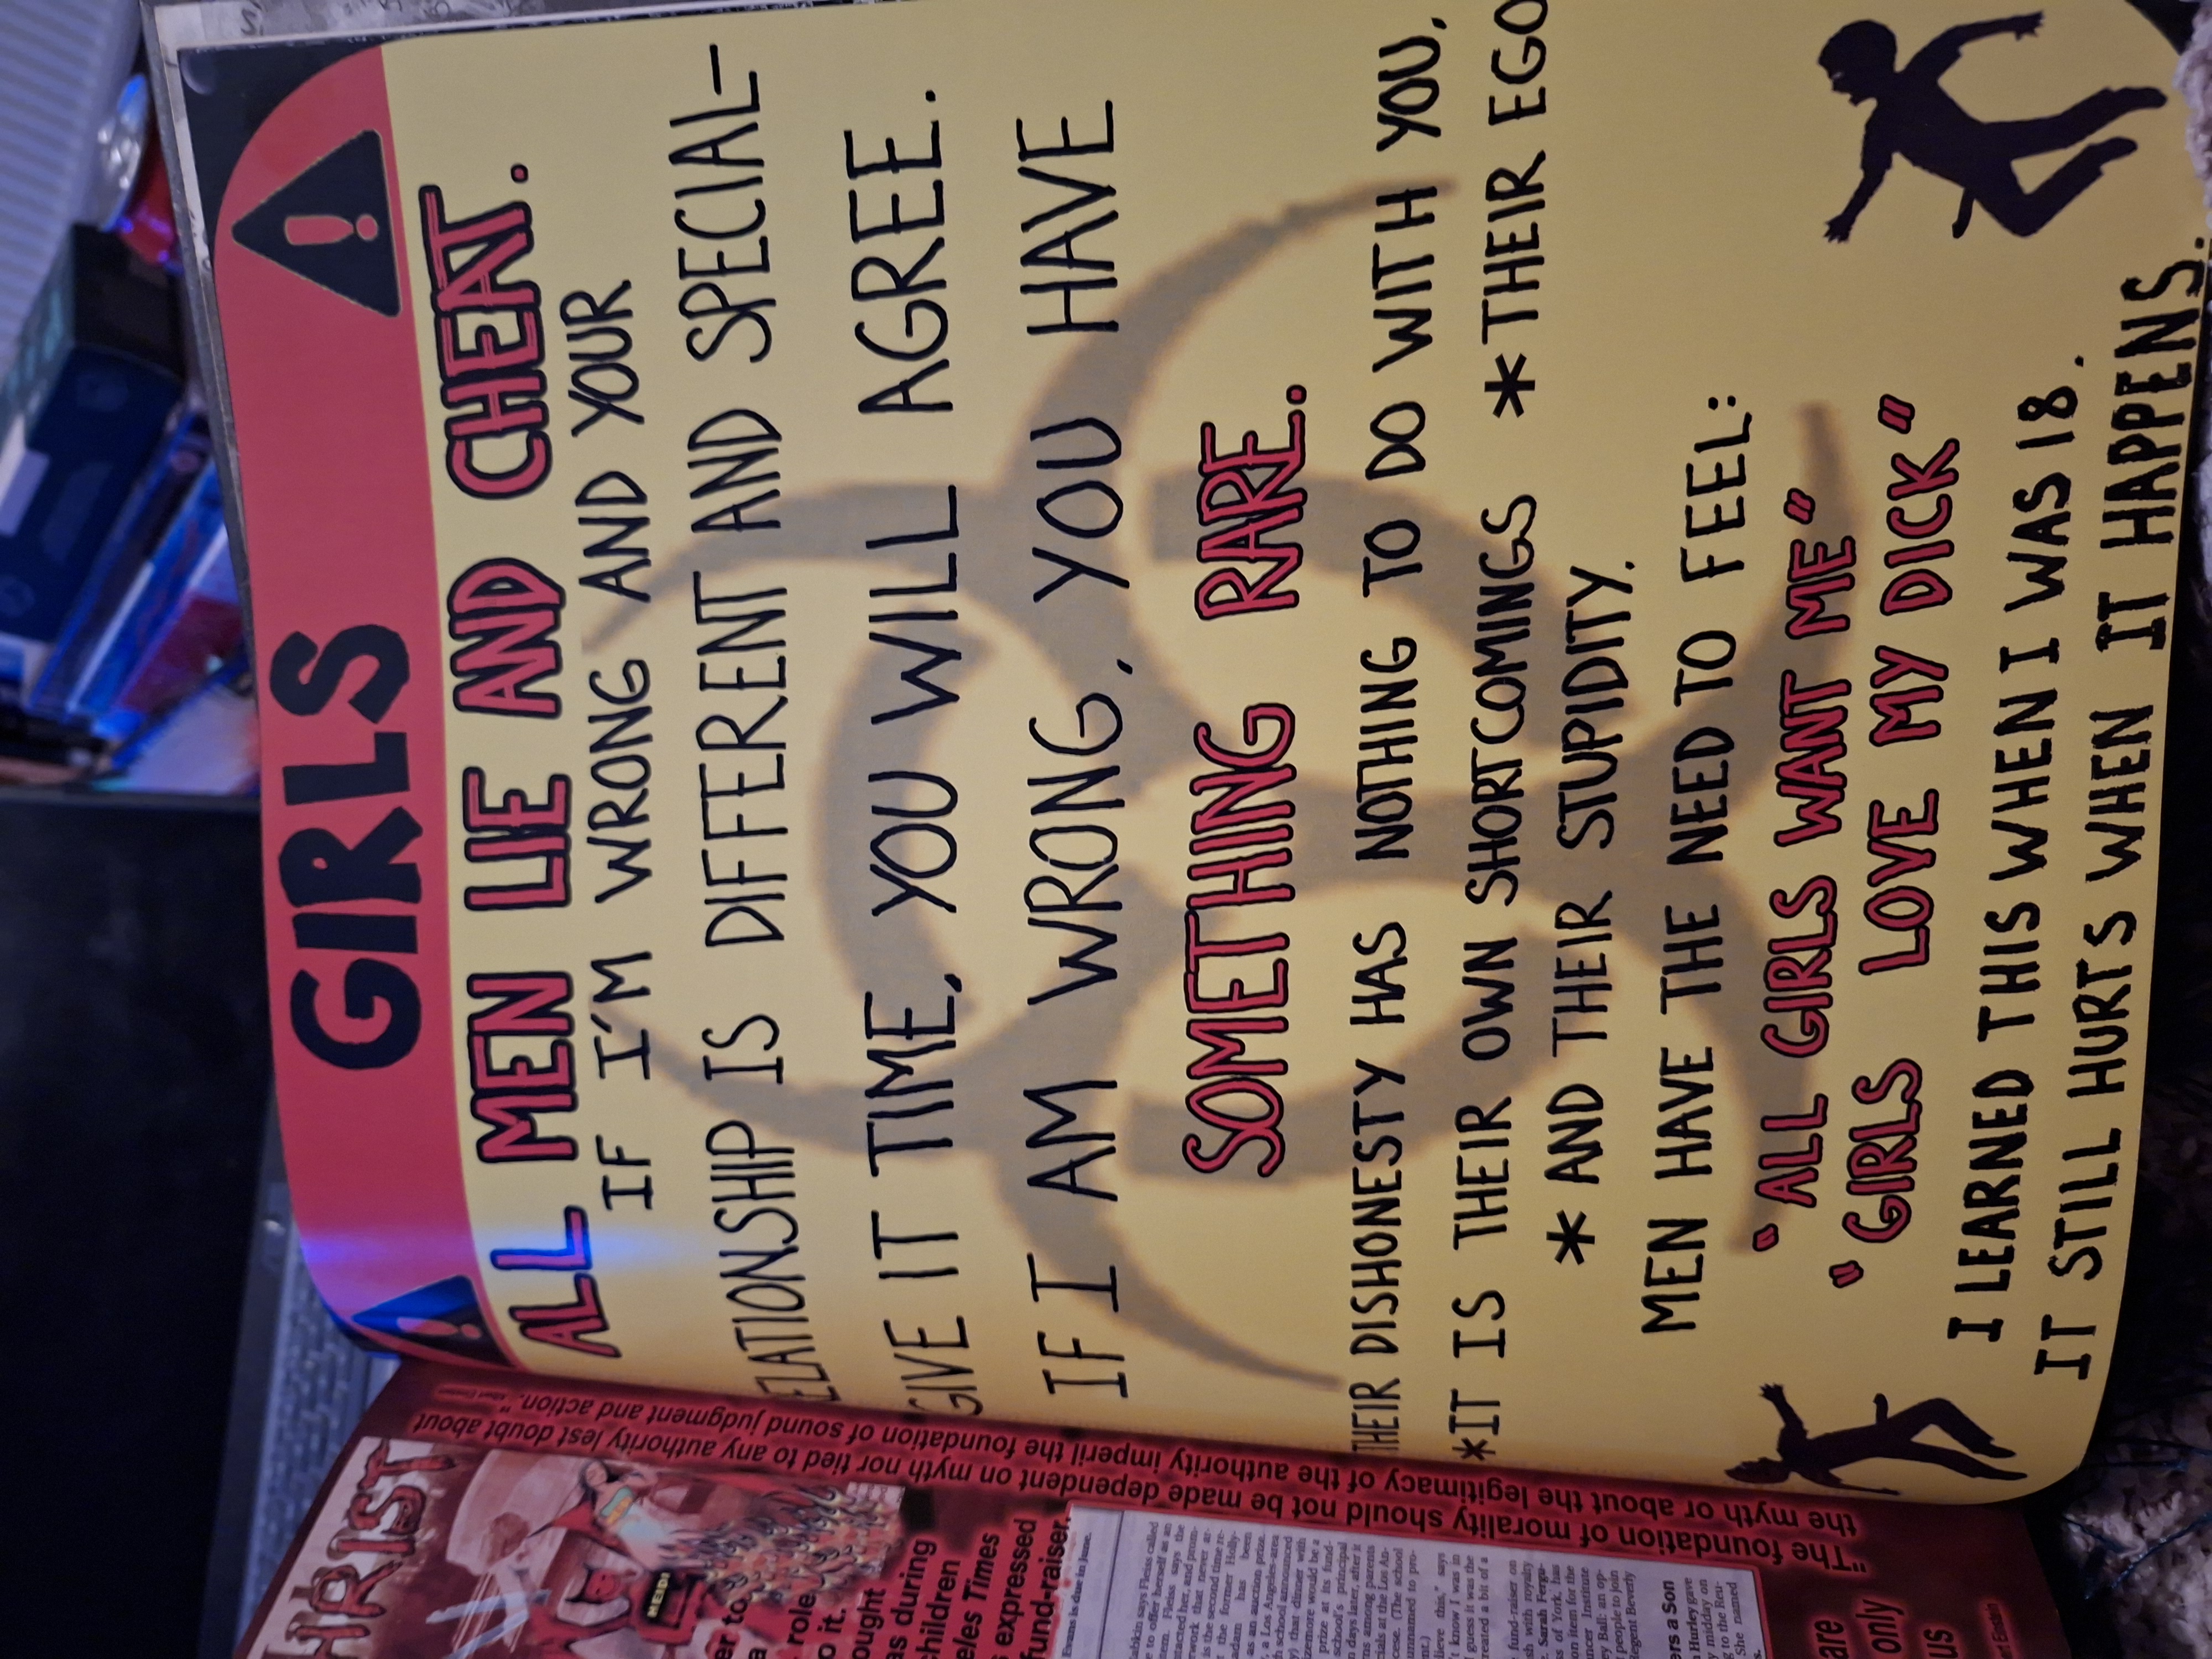 GIRLS
ALL MEN LIE AND CHEAT.
IF I'M WRONG AND YOUR
RELATIONSHIP IS DIFFERENT AND SPECIAL-
GIVE IT TIME, YOU WILL AGREE.
IF I AM WRONG, YOU HAVE
SOMETHING RARE.
THEIR DISHONESTY HAS NOTHING TO DO WITH YOU,
*IT IS THEIR OWN SHORTCOMINGS *THEIR EGO
*AND THEIR STUPIDITY.
MEN HAVE THE NEED TO FEEL:
"ALL GIRLS WANT ME"
"GIRLS LOVE MY DICK"
I LEARNED THIS WHEN I WAS 18.
IT STILL HURTS WHEN IT HAPPENS.
"The foundation of morality should not be made dependent on myth nor tied to any authority lest doubt about
the myth or about the legitimacy of the authority imperil the foundation of sound judgment and action."
HRIST
HEIDI
er to
a
role
o it.
ought
as during
children
eles Times
s expressed
fund-raiser.
Evans is due in June.
are
only
us